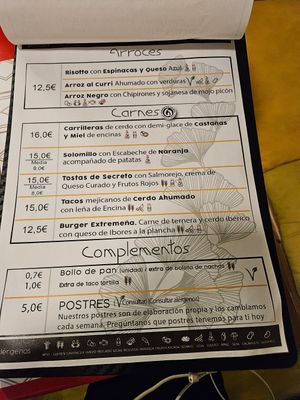 Arroces
Risotto con Espinacas y Queso Azul
12,5€
Arroz al Curri Ahumado con verduras
Arroz Negro con Chipirones y sojanesa de mojo picón
Carnes 6
16,0€
Carrilleras de cerdo con demi-glace de Castañas
y Miel de encinas
15,0€
Media
8,0€
Solomillo con Escabeche de Naranja
acompañado de patatas
15,0€
Media
8,0€
Tostas de Secreto con Salmorejo, crema de
Queso Curado y Frutos Rojos
15,0€
Tacos mejicanos de Cerdo Ahumado
con leña de Encina
12,5€
Burger Extremeña. Carne de ternera y cerdo ibérico
con queso de ibores a la plancha
Complementos
0,7€
Bollo de pan (unidad) / extra de bolsita de nachos
1,0€
Extra de taco tortilla
5,0€
POSTRES (Consultar) (Consultar alérgenos)
Nuestros postres son de elaboración propia y los cambiamos
cada semana. Pregúntanos que postres tenemos para ti hoy
alérgenos